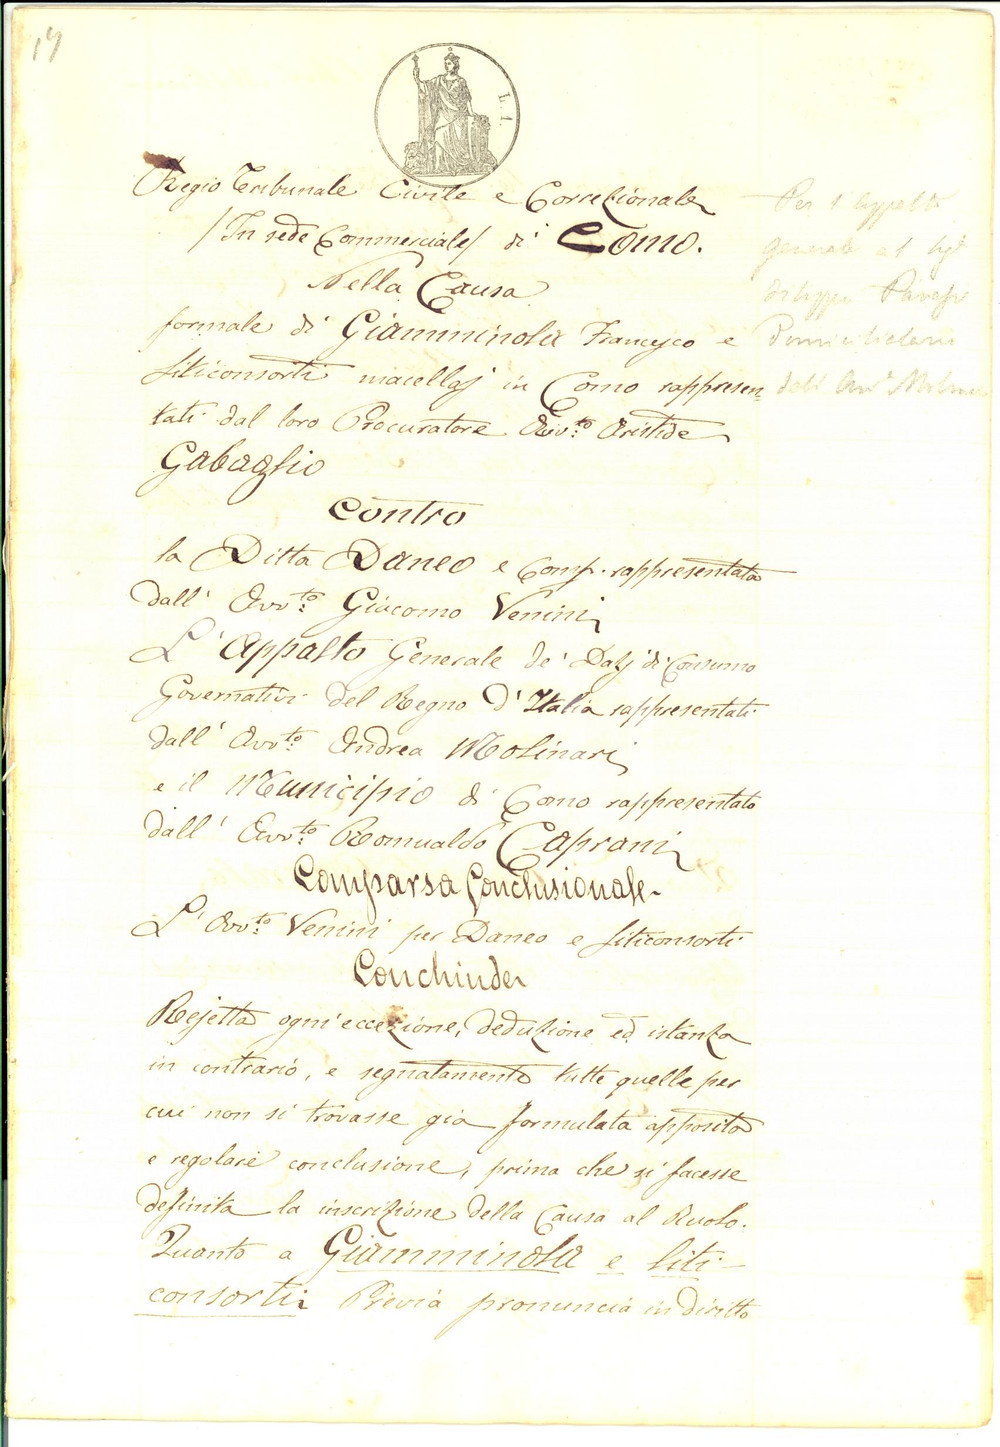 19
L. 1.
Regio Tribunale Civile e Correzionale
/In sede Commerciale/ di Como.
Nella Causa
formale di Giamminola Francesco e
Liticonsorti macellaj in Como rappresen-
tati dal loro Procuratore Avv.to Aristide
Gabaglio
Contro
la Ditta Daneo e Comp. rappresentata
dall' Avv.to Giacomo Venini
L'Appalto Generale de' Dazj di Consumo
Governativi del Regno d'Italia rappresentati
dall' Avv.to Andrea Molinari
e il Municipio di Como rappresentato
dall' Avv.to Romualdo Caprani
Comparsa Conclusionale
L'Avv.to Venini per Daneo e Liticonsorti
Conchiude
Rejetta ogni eccezione, deduzione ed istanza
in contrario, e segnatamente tutte quelle per
cui non si trovasse già formulata apposita
e regolare conclusione, prima che si facesse
definita la inscrizione della Causa al Ruolo.
Quanto a Giamminola e Liti-
consorti: Previa pronuncia in diritto
Per l'Appalto
generale
dell' Avv.